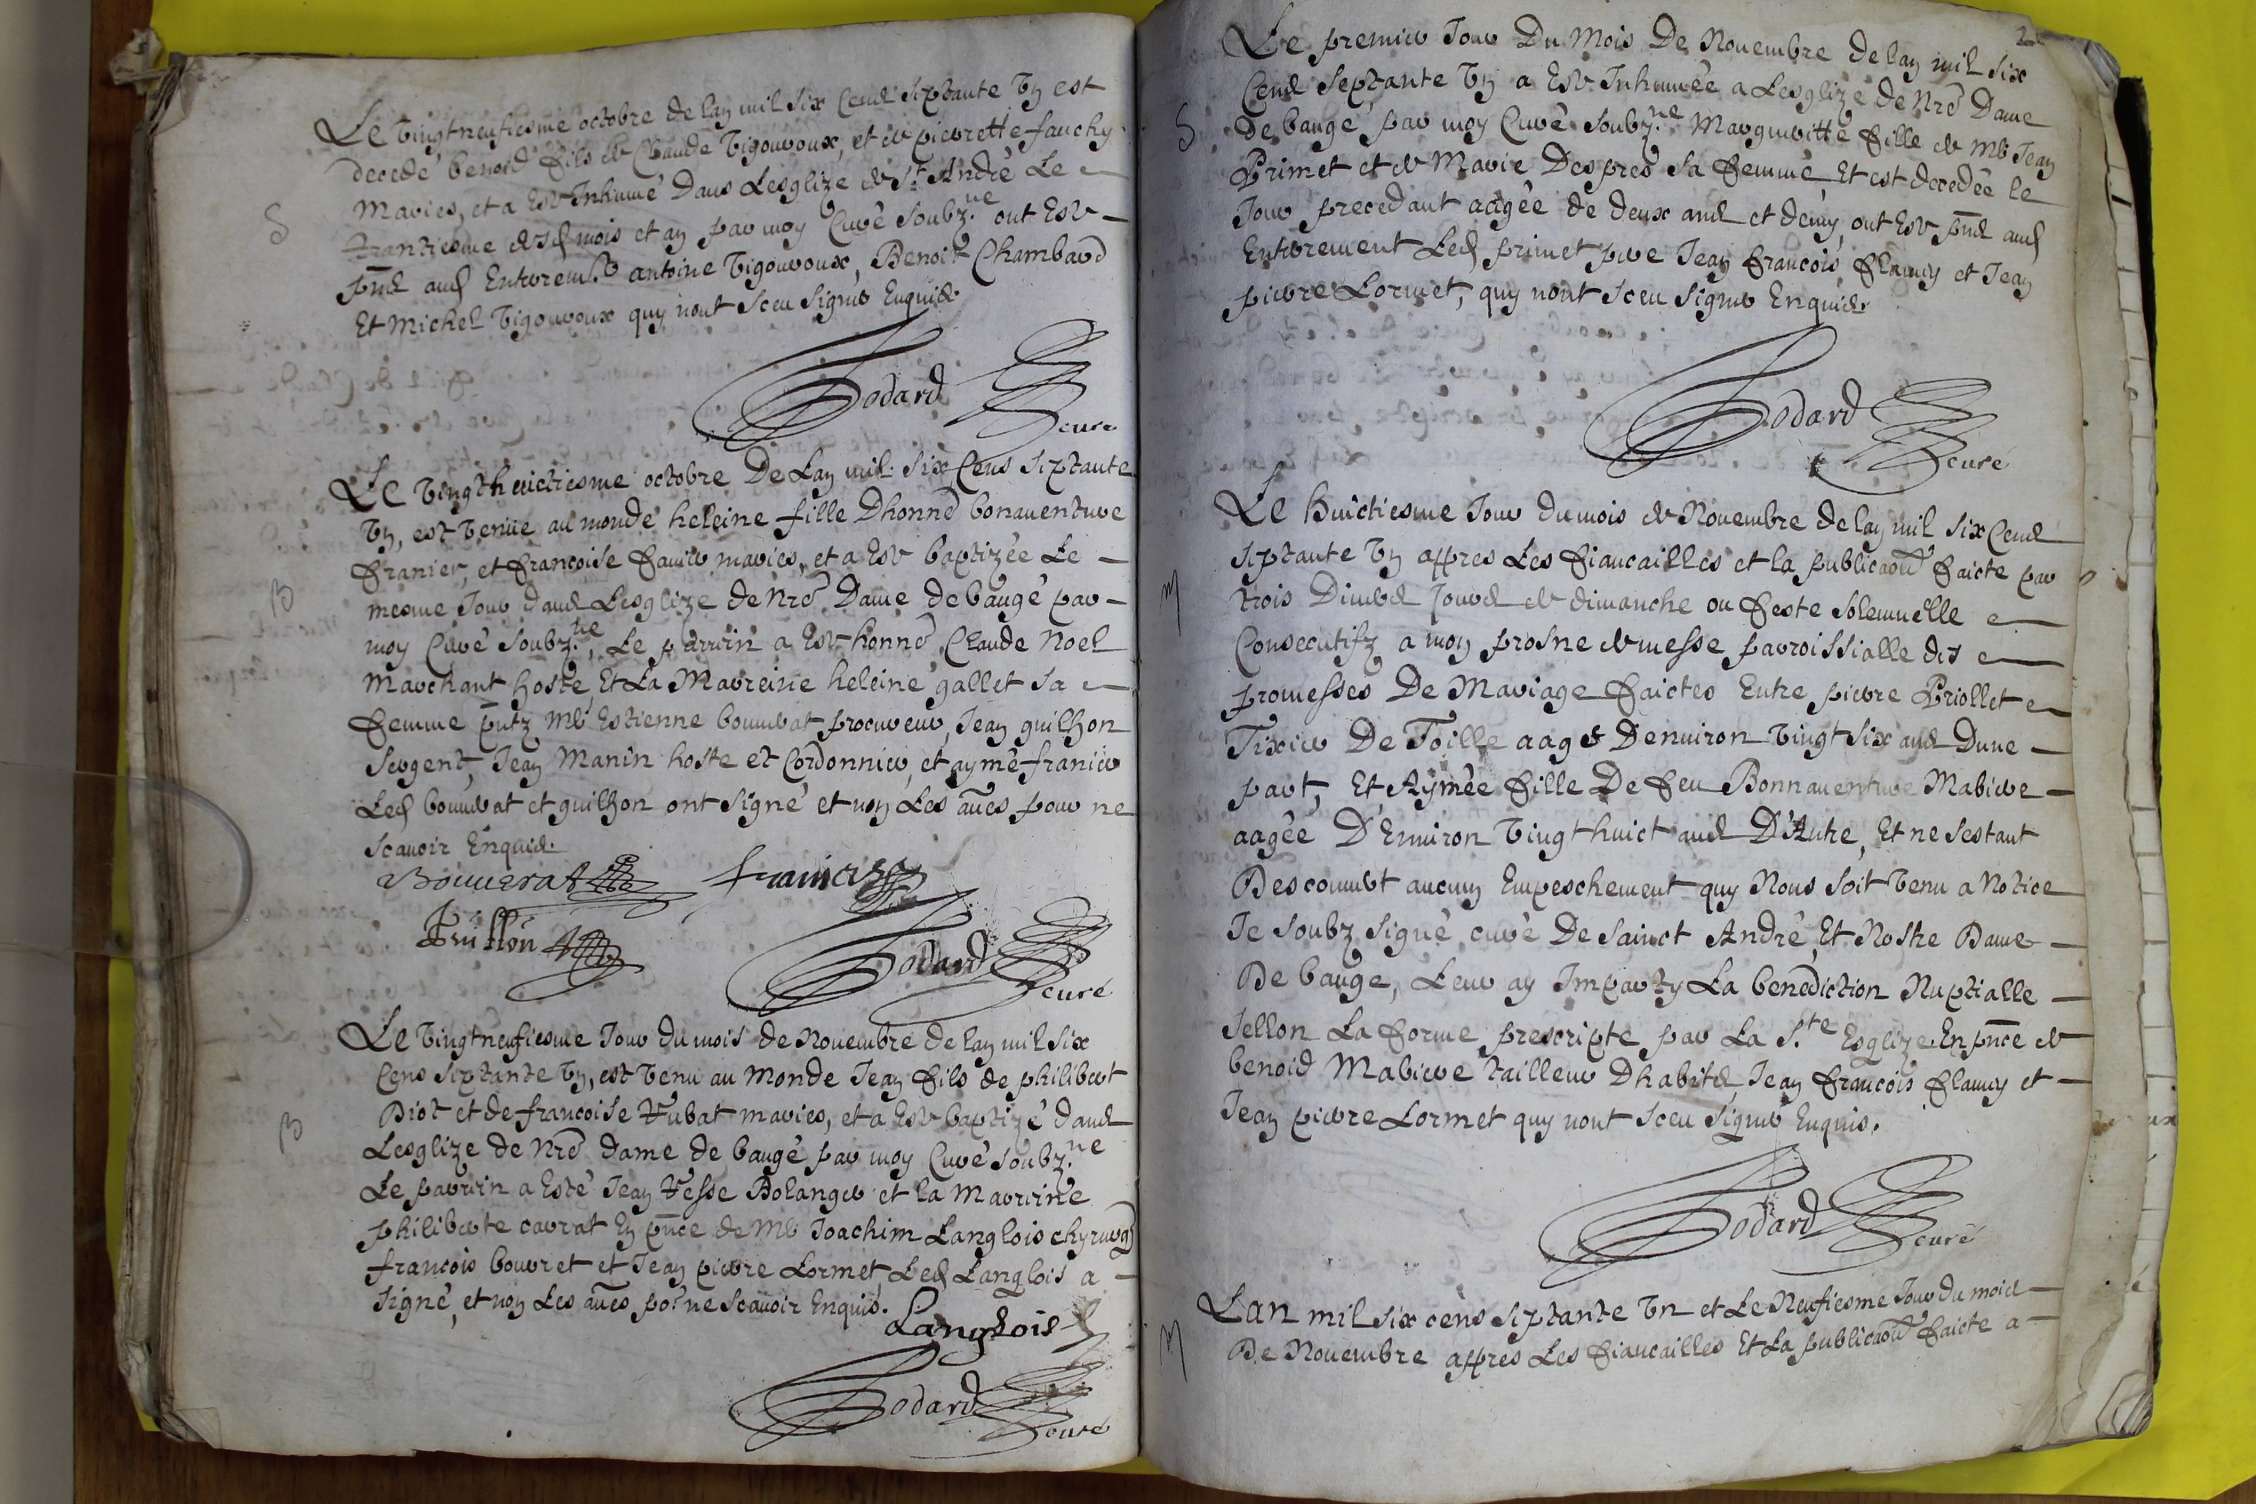 Le vingtneufiesme octobre de lan mil six cens septante un est
decedé benoid fils de Claude Vigouroux, et de pierrette fauchy
Mariés, et a esté Inhumé Dans Lesglize de St André Le
trantiesme desd mois et an par moy Curé soubz.ne ont esté
pnts aud Enterremt antoine Vigouroux, Benoit Chambard
Et Michel Vigouroux quy nont sceu signer Enquis
S
Godard
curé
Le vingthuictiesme octobre De Lan mil six Cens septante
un, est venue au monde heleine fille Dhonne bonaventure
franier, et françoise mariés, et a esté baptizée Le
mesme Jour dans Lesglize de Nre Dame de baugé par
moy Curé soubz.ne, Le parrin a esté honne Claude Noel
Marchant hoste Et La Marreine heleine gallet sa
femme pntz Me Estienne bouverat procureur, Jean guilhon
sergent, Jean Manin hoste et Cordonnier, et aymé franier
Led bouverat et guilhon ont signé et non Les aues pour ne
scavoir Enquis.
B
Bouuerat
franier
Guillon
Godard
curé
Le vingtneufiesme Jour du mois de Novembre de lan mil six
Cens septante un, est venu au monde Jean fils de philibert
Diot et de françoise mariés, et a esté baptizé dans
Lesglize de Nre dame de baugé par moy Curé soubz.ne
Le parrin a esté Jean Bolanger et la Marreine
philiberte carrat En pnce de Me Joachim Langlois chyrurg
françois bouvret et Jean pierre Lormet Led Langlois a
signé, et non Les aues por ne scavoir Enquis.
B
Langlois
Godard
curé
2
Le premier Jour Du Mois De Novembre de lan mil six
Cens septante un a esté Inhumée a Lesglize de Nre Dame
de baugé par moy Curé soubz.ne Marguerite fille de Me Jean
Primet et de Marie Desprès sa femme, Et est decedée le
Jour precedant aagée de deux ans et demy, ont esté pnts aud
Enterrement Led primet pere Jean françois flamy et Jean
pierre Lormet, quy nont sceu signer Enquis.
S
Godard
curé
Le huictiesme Jour du mois de Novembre de lan mil six Cens
septante un appres Les fiancailles et la publicaon faicte par
trois Divers Jours de dimanche ou feste solemnelle
Consecutifz a mon prosne de messe parroissialle des
promesses De Mariage faictes Entre pierre Priollet
Tixier De Toille aagé Denviron vingt six ans Dune
part, Et Aymée fille De feu Bonnaventure Mabiere
aagée D'Environ vingthuict ans D'Autre, Et ne sestant
Descouvert aucun Empeschement quy Nous soit venu a Notice
Je soubz signé curé De sainct André Et Nostre Dame
De baugé, Leur ay Imparty La benediction Nuptialle
sellon La forme prescripte par La S.te Esglize En pnce de
benoid Mabiere tailleur Dhabits, Jean françois flamy et
Jean pierre Lormet quy nont sceu signer Enquis.
M
Godard
curé
Lan mil six cens septante un et Le Neufiesme Jour du mois
De Novembre appres Les fiancailles Et La publicaon faicte a
M